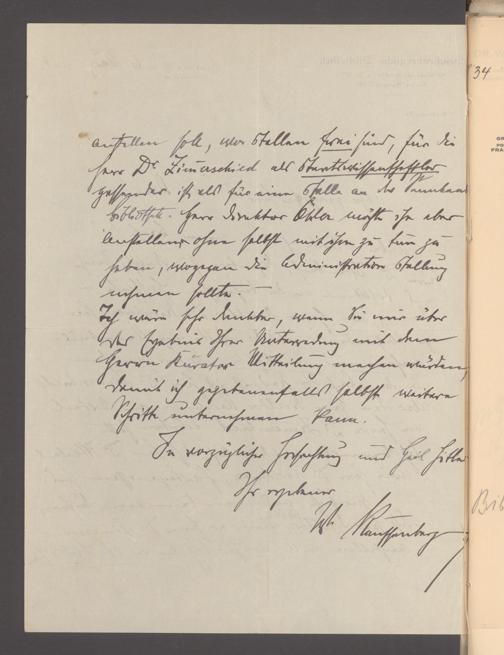 anstellen soll, wo Stellen frei sind, für die
Herr Dr Zimerschied als Staatswissenschaftler
geeigneter ist als für eine Stelle an der
bibliothek. Herr Direktor möchte ihn aber
anstellen ohne selbst mit ihm zu tun zu
haben, wogegen die Administration Stellung
nehmen sollte. —
Ich wäre sehr dankbar, wenn Sie mir über
das Ergebnis Ihrer Unterredung mit dem
Herrn Kurator Mitteilung machen würden,
damit ich gegebenenfalls selbst weitere
Schritte unternehmen kann.
In vorzüglicher Hochachtung und Heil Hitler
Ihr ergebener
W. Rauschenberger
34